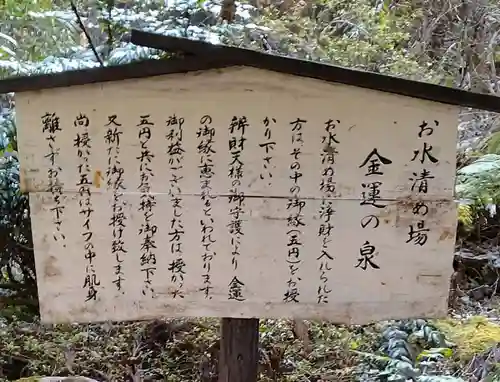 お水清め場
金運の泉
お水清め場に浄財を入れられた
方はその中の御縁（五円）をお授
かり下さい。
辨財天様の御守護により金運
の御縁に恵まれるといわれております。
御利益がございました方は授かった
五円と共にお名前を御奉納下さい。
又新たに御縁をお授け致します。
尚授かった五円はサイフの中に肌身
離さずお持ち下さい。